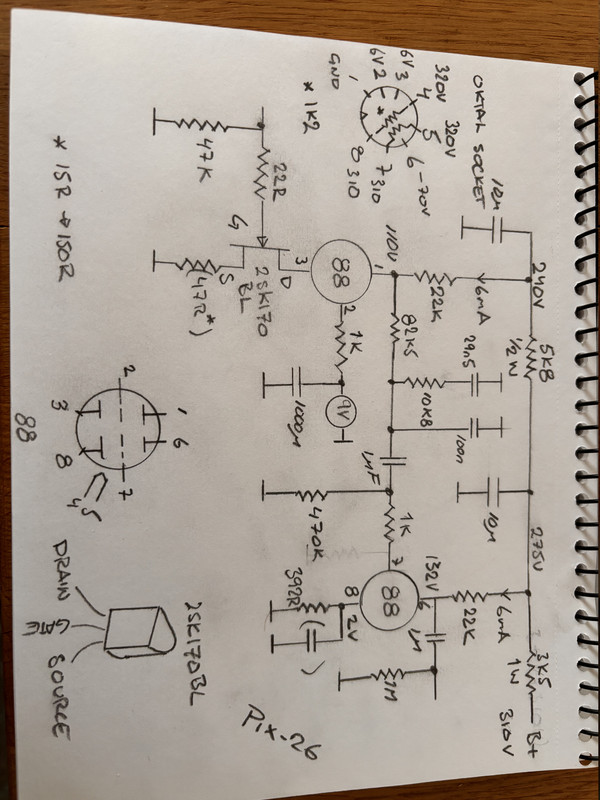 OKTAL SOCKET
1 GND
6V 2
6V 3
320V 4
320V 5
6 -70V
7 310
8 310
* 1K2
10µ
240V
5K8
½W
10µ
275V
3K5
1W
B+
310V
6mA
22K
110V
82K5
29n5
10K8
100n
1µF
6mA
22K
132V
6
1µ
1M
47K
22R
G
D
S
2SK170
BL
47R*)
3
88
1
2
1K
1000µ
9V
470K
1K
7
88
8
2V
392R
( )
* 15R → 150R
2
3
8
1
6
7
4
5
88
2SK170BL
DRAIN
GATE
SOURCE